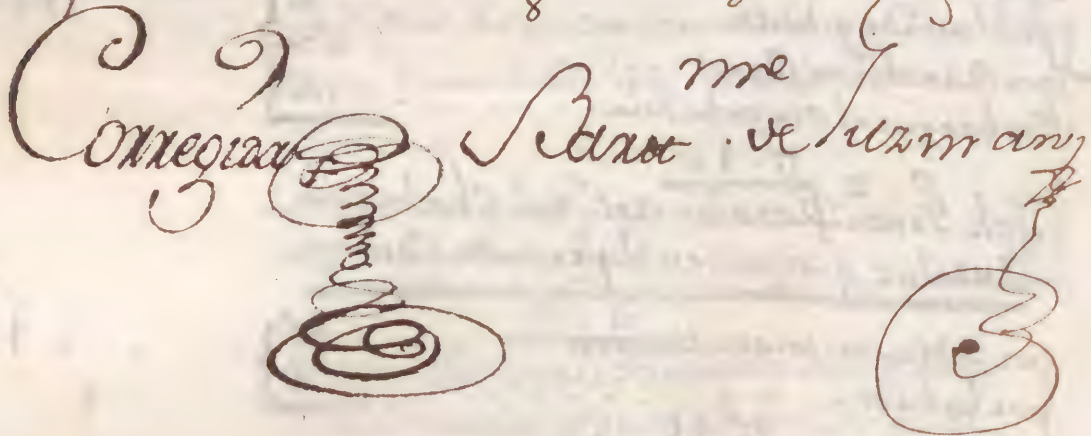 Corregida Barot.me de Guzman